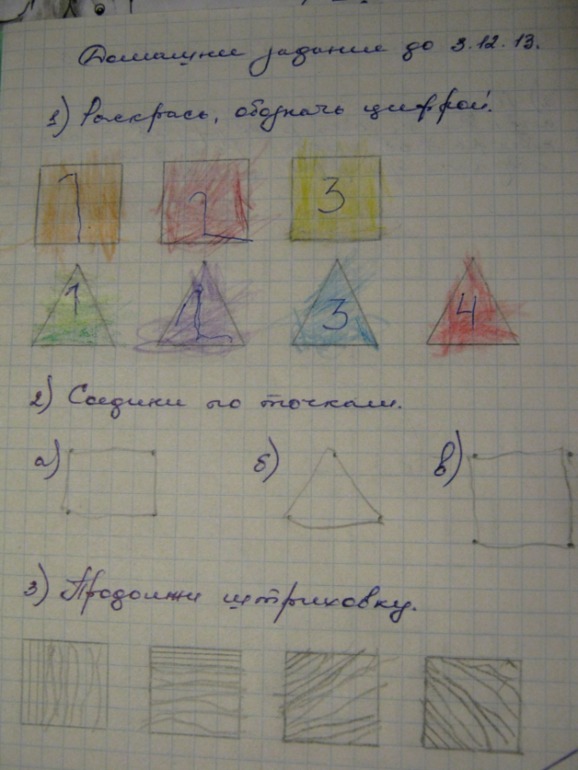 Домашнее задание до 3.12.13.
1) Раскрась, обозначь цифрой.
1 2 3
1 2 3 4
2) Соедини по точкам.
а) б) в)
3) Продолжи штриховку.